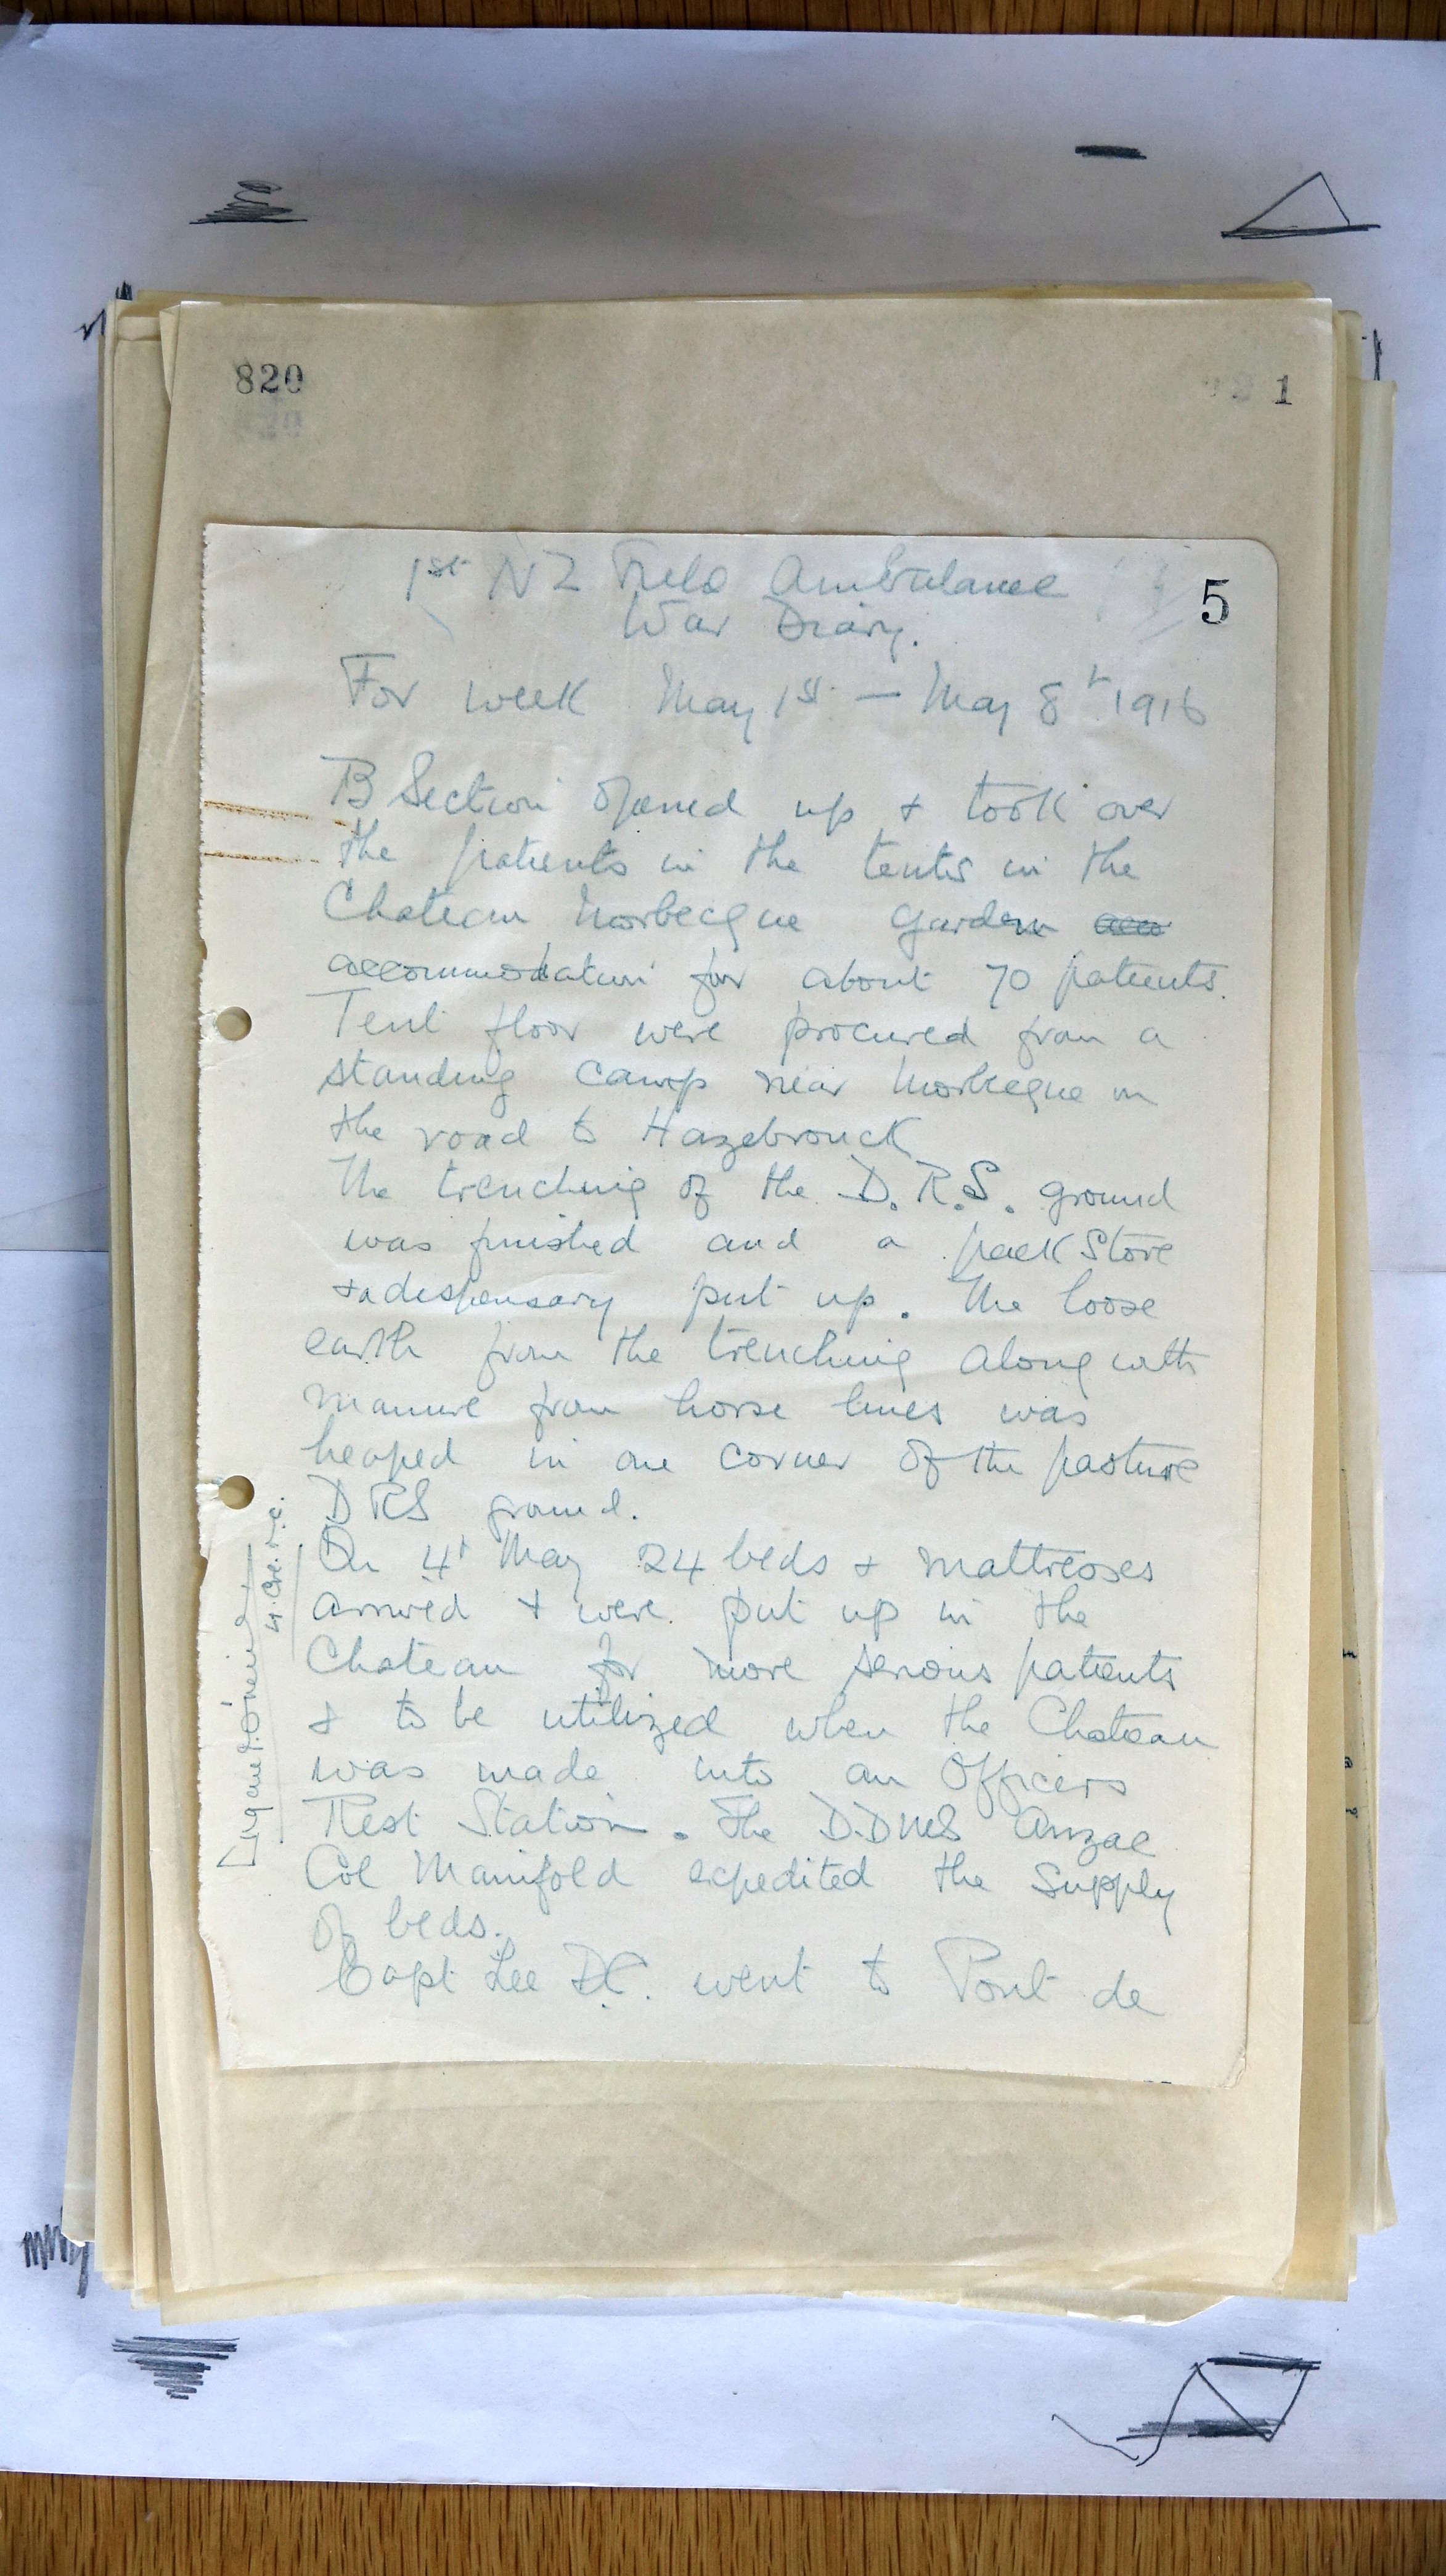 820
1
5
1st NZ Field Ambulance
War Diary.
For week May 1st — May 8t 1916
B Section opened up & took over
the patients in the tents in the
Chateau Morbecque garden
accommodation for about 70 patients.
Tent floor were procured from a
standing camp near Morbecque on
the road to Hazebrouck
The trenching of the D.R.S. ground
was finished and a pack store
& a dispensary put up. The loose
earth from the trenching along with
manure from horse lines was
heaped in one corner of the pasture
DRS ground.
On 4t May 24 beds & mattresses
arrived & were put up in the
Chateau for more serious patients
& to be utilized when the Chateau
was made into an Officers
Rest Station. The D.DMS Anzac
Col Manifold expedited the supply
of beds.
Capt Lee D.C. went to Pont de
Eugene J. O'Neill